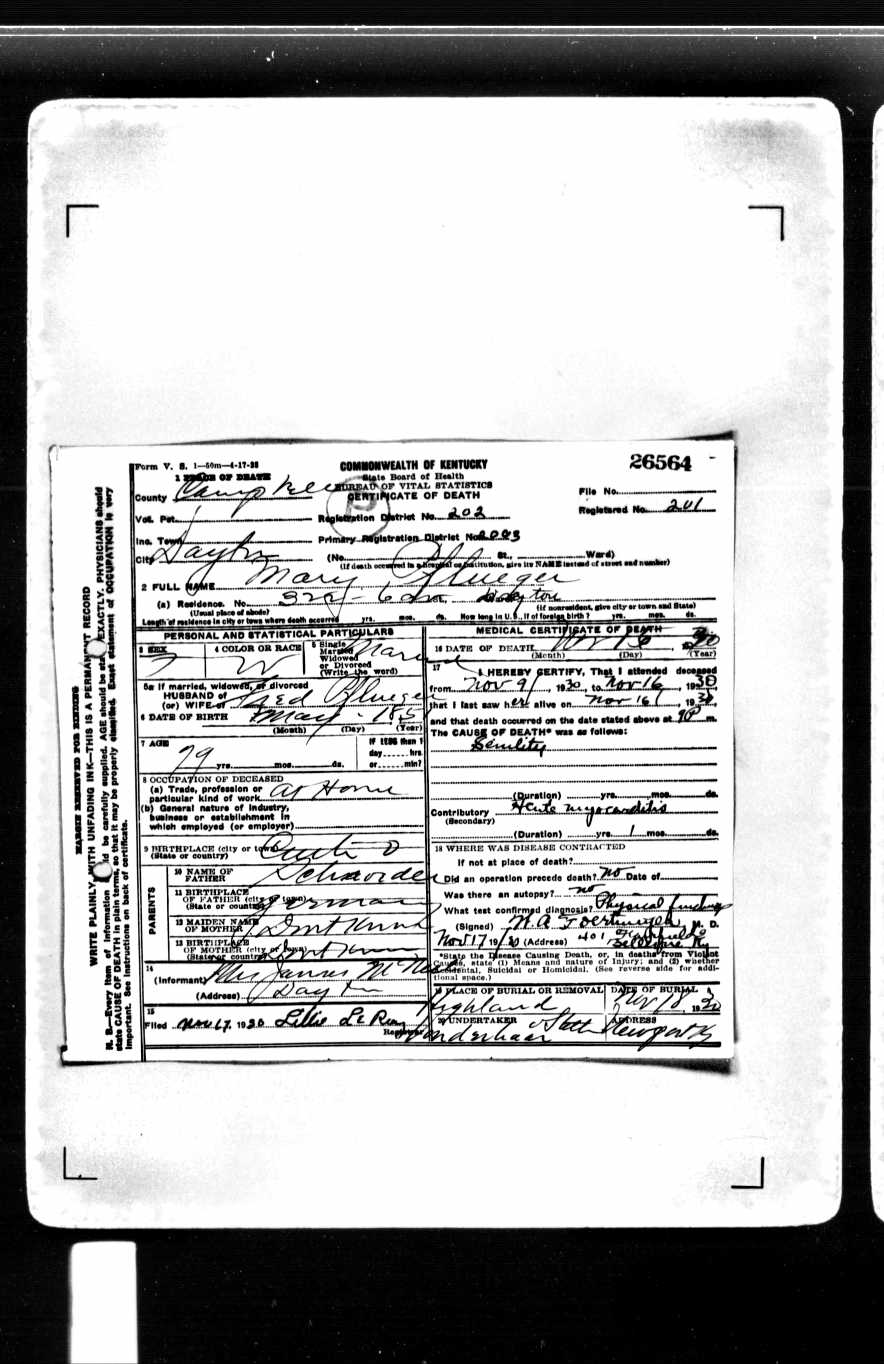 Form V. S. 1—50m—4-17-28
COMMONWEALTH OF KENTUCKY
State Board of Health
BUREAU OF VITAL STATISTICS
CERTIFICATE OF DEATH
26564
1 PLACE OF DEATH
County Campbell
File No.
Vot. Pct.
Registration District No. 202
Registered No. 201
Inc. Town
Primary Registration District No.
City Dayton
(No. St., Ward)
(If death occurred in a hospital or institution, give its NAME instead of street and number)
2 FULL NAME Mary Pflueger
(a) Residence. No. Dayton
(Usual place of abode)
(If nonresident, give city or town and State)
Length of residence in city or town where death occurred yrs. mos. ds. How long in U. S., if of foreign birth? yrs. mos. ds.
PERSONAL AND STATISTICAL PARTICULARS
3 SEX F
4 COLOR OR RACE W
5 Single Married Widowed or Divorced (Write the word) Married
5a If married, widowed, or divorced
HUSBAND of
(or) WIFE of Fred Pflueger
6 DATE OF BIRTH May
(Month) (Day) (Year)
7 AGE 79 yrs. mos. ds.
If LESS than 1 day hrs. or min?
8 OCCUPATION OF DECEASED
(a) Trade, profession or particular kind of work at Home
(b) General nature of industry, business or establishment in which employed (or employer)
9 BIRTHPLACE (city or town)
(State or country)
PARENTS
10 NAME OF FATHER Schaorder
11 BIRTHPLACE OF FATHER (city or town)
(State or country) Germany
12 MAIDEN NAME OF MOTHER Dont Know
13 BIRTHPLACE OF MOTHER (city or town)
(State or country) Dont Know
14
(Informant) Mrs James
(Address) Dayton
15
Filed Nov 17, 1930 Lillie Le Roy
Registrar
MEDICAL CERTIFICATE OF DEATH
16 DATE OF DEATH Nov 16, 30
(Month) (Day) (Year)
17
I HEREBY CERTIFY, That I attended deceased
from Nov 9, 1930, to Nov 16, 1930
that I last saw her alive on Nov 16, 1930,
and that death occurred on the date stated above at 9P m.
The CAUSE OF DEATH* was as follows:
Senility
(Duration) yrs. mos. ds.
Contributory Acute myocarditis
(Secondary)
(Duration) yrs. 1 mos. ds.
18 WHERE WAS DISEASE CONTRACTED
If not at place of death?
Did an operation precede death? no Date of
Was there an autopsy? no
What test confirmed diagnosis? Physical findings
(Signed) W. A. M. D.
Nov 17 1930 (Address) 401 Bellevue Ky
*State the Disease Causing Death, or, in deaths from Violent Causes, state (1) Means and nature of Injury; and (2) whether Accidental, Suicidal or Homicidal. (See reverse side for additional space.)
19 PLACE OF BURIAL OR REMOVAL
Highland
DATE OF BURIAL
Nov 18 1930
20 UNDERTAKER
ADDRESS
Newport Ky
MARGIN RESERVED FOR BINDING
WRITE PLAINLY, WITH UNFADING INK—THIS IS A PERMANENT RECORD
N. B.—Every item of information should be carefully supplied. AGE should be stated EXACTLY. PHYSICIANS should
state CAUSE OF DEATH in plain terms, so that it may be properly classified. Exact statement of OCCUPATION is very
important. See instructions on back of certificate.